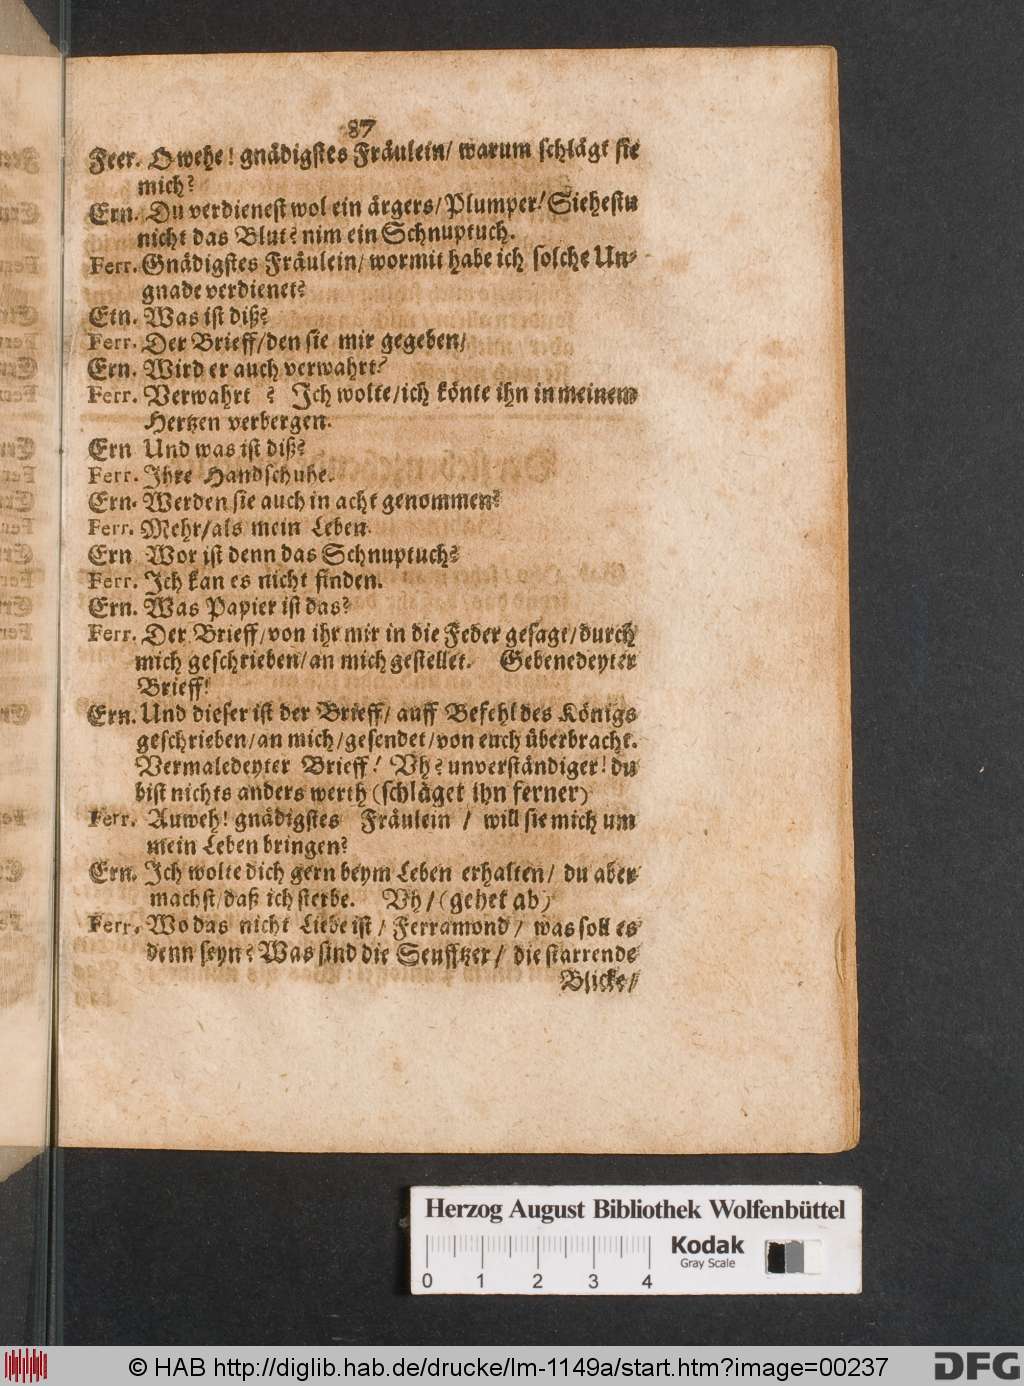 87
Feer. O wehe! gnädigstes Fräulein/ warum schlägt sie
mich?
Ern. Du verdienest wol ein ärgers/ Plumper! Siehestu
nicht das Blut? nim ein Schnuptuch.
Ferr. Gnädigstes Fräulein/ wormit habe ich solche Un-
gnade verdienet?
Etn. Was ist diß?
Ferr. Der Brieff/ den sie mir gegeben/
Ern. Wird er auch verwahrt?
Ferr. Verwahrt ? Ich wolte/ ich könte ihn in meinem
Hertzen verbergen.
Ern Und was ist diß?
Ferr. Ihre Handschuhe.
Ern. Werden sie auch in acht genommen?
Ferr. Mehr/ als mein Leben.
Ern Wor ist denn das Schnuptuch?
Ferr. Ich kan es nicht finden.
Ern. Was Papier ist das?
Ferr. Der Brieff/ von ihr mir in die Feder gesagt/ durch
mich geschrieben/ an mich gestellet. Gebenedeyter
Brieff!
Ern. Und dieser ist der Brieff/ auff Befehl des Königs
geschrieben/ an mich/ gesendet/ von euch überbracht.
Vermaledeyter Brieff! Vh? unverständiger! du
bist nichts anders werth (schläget ihn ferner)
Ferr. Auweh! gnädigstes Fräulein / will sie mich um
mein Leben bringen?
Ern. Ich wolte dich gern beym Leben erhalten/ du aber
machst/ daß ich sterbe. Vh/ (gehet ab)
Ferr. Wo das nicht Liebe ist/ Ferramond/ was soll es
denn seyn? Was sind die Seufftzer/ die starrende
Blicke/
Herzog August Bibliothek Wolfenbüttel
Kodak
Gray Scale
0 1 2 3 4
© HAB http://diglib.hab.de/drucke/lm-1149a/start.htm?image=00237
DFG